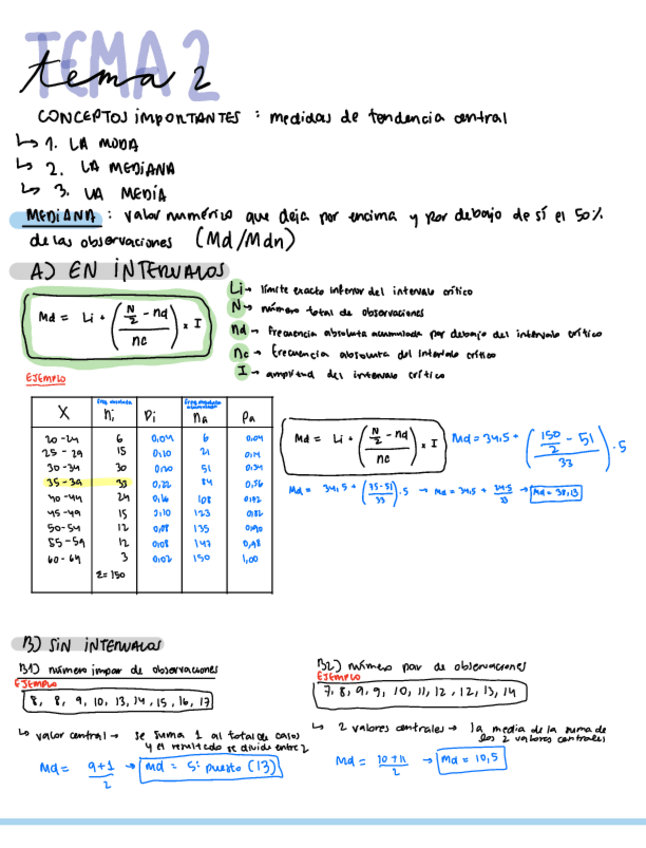 TEMA 2
tema 2
CONCEPTOS IMPORTANTES : medidas de tendencia central
↳ 1. LA MODA
↳ 2. LA MEDIANA
↳ 3. LA MEDÍA
MEDIANA : valor numérico que deja por encima y por debajo de sí el 50%
de las observaciones (Md/Mdn)
A) EN INTERVALOS
Md = Li + ( (N/2 - nd) / nc ) x I
Li → límite exacto inferior del intervalo crítico
N → número total de observaciones
nd → Frecuencia absoluta acumulada por debajo del intervalo crítico
nc → frecuencia absoluta del intervalo crítico
I → amplitud del intervalo crítico
EJEMPLO
X ni Pi na Pa
20-24 6 0,04 6 0,04
25-29 15 0,10 21 0,14
30-34 30 0,20 51 0,34
35-39 33 0,22 84 0,56
40-44 24 0,16 108
45-49 15 0,10 123 0,82
50-54 12 0,08 135 0,90
55-59 12 0,08 147 0,98
60-64 3 0,02 150 1,00
Σ= 150
Md = Li + ( (N/2 - nd) / nc ) x I
Md = 34,5 + ( (150/2 - 51) / 33 ) · 5
Md = 34,5 + ( (75-51) / 33 ) · 5 → Md = 34,5 + 24·5 / 33 → Md = 38,13
B) SIN INTERVALOS
B1) número impar de observaciones
EJEMPLO
8, 8, 9, 10, 13, 14, 15, 16, 17
↳ valor central → se suma 1 al total de casos
y el resultado se divide entre 2
Md = 9+1 / 2 → Md = 5º puesto (13)
B2) número par de observaciones
EJEMPLO
7, 8, 9, 9, 10, 11, 12, 12, 13, 14
↳ 2 valores centrales → la media de la suma de
los 2 valores centrales
Md = 10+11 / 2 → Md = 10,5